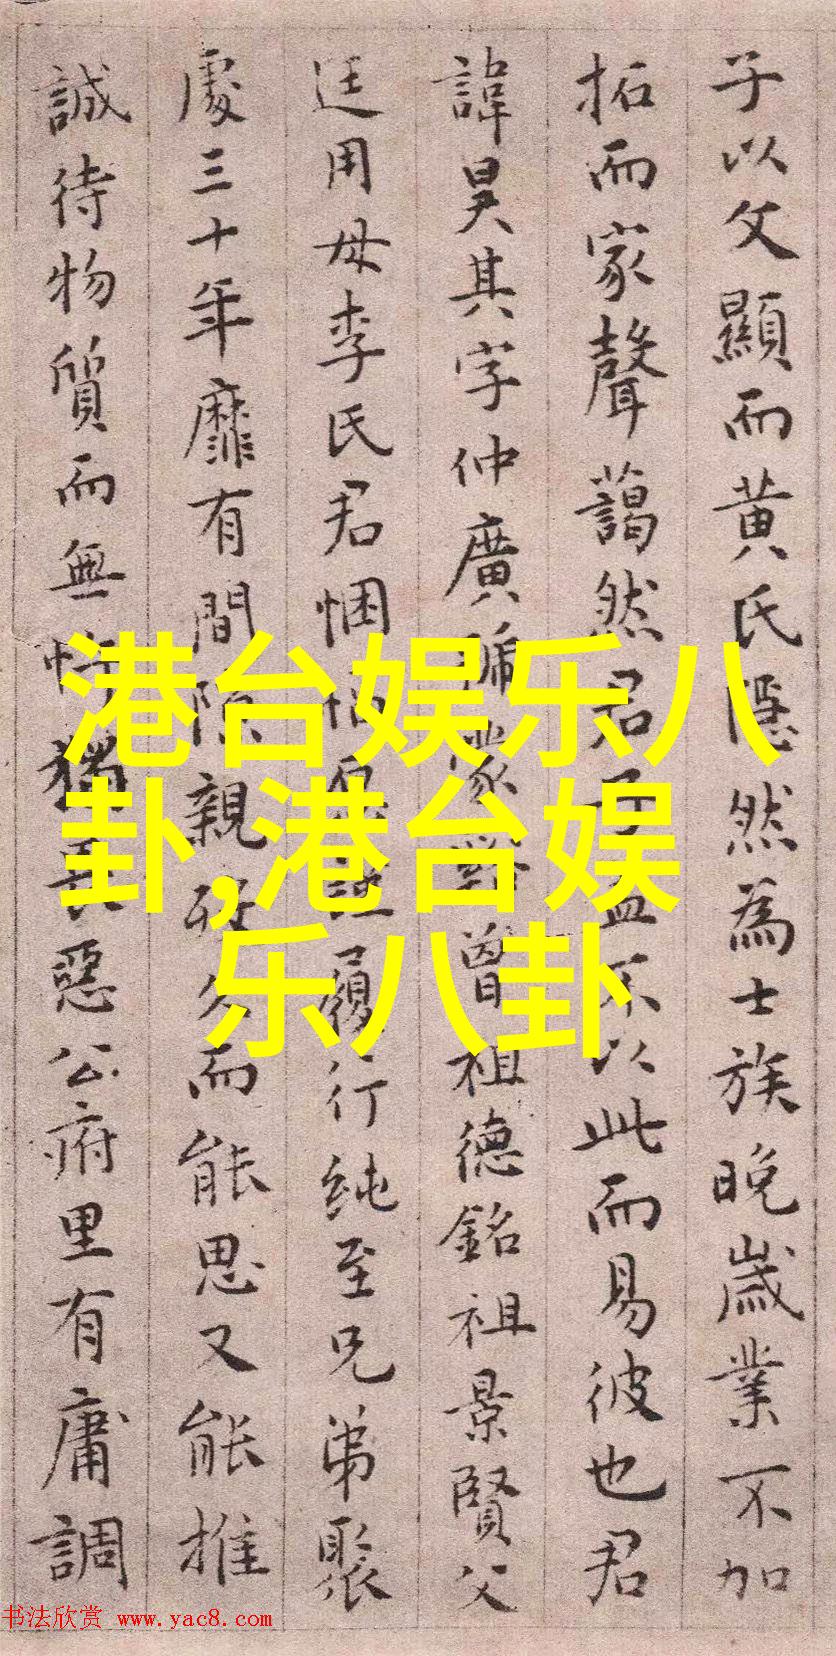 子以父顯而黃氏隱然為士族晚歲業不加
拓而家聲藹然君子益不以此而易彼也君
諱昊其字仲廣曾祖德銘祖景賢父
廷用母李氏君悃履行純至兄弟聚
處三十年靡有間隙親而能思又能推
誠待物質而無惡公府里有庸調
港台娱乐八
卦,港台娱
乐八卦
书法欣赏 www.yac8.com